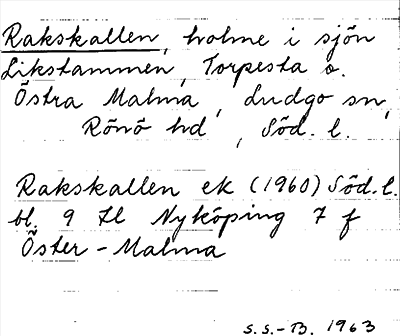 Rakskallen, holme i sjön
Likstammen, Torpesta o.
Östra Malma, Ludgo sn,
Rönö hd, Söd. l.
Rakskallen ek (1960) Söd. l.
bl. 9 Il Nyköping 7 f
Öster-Malma
S.S.-B. 1963